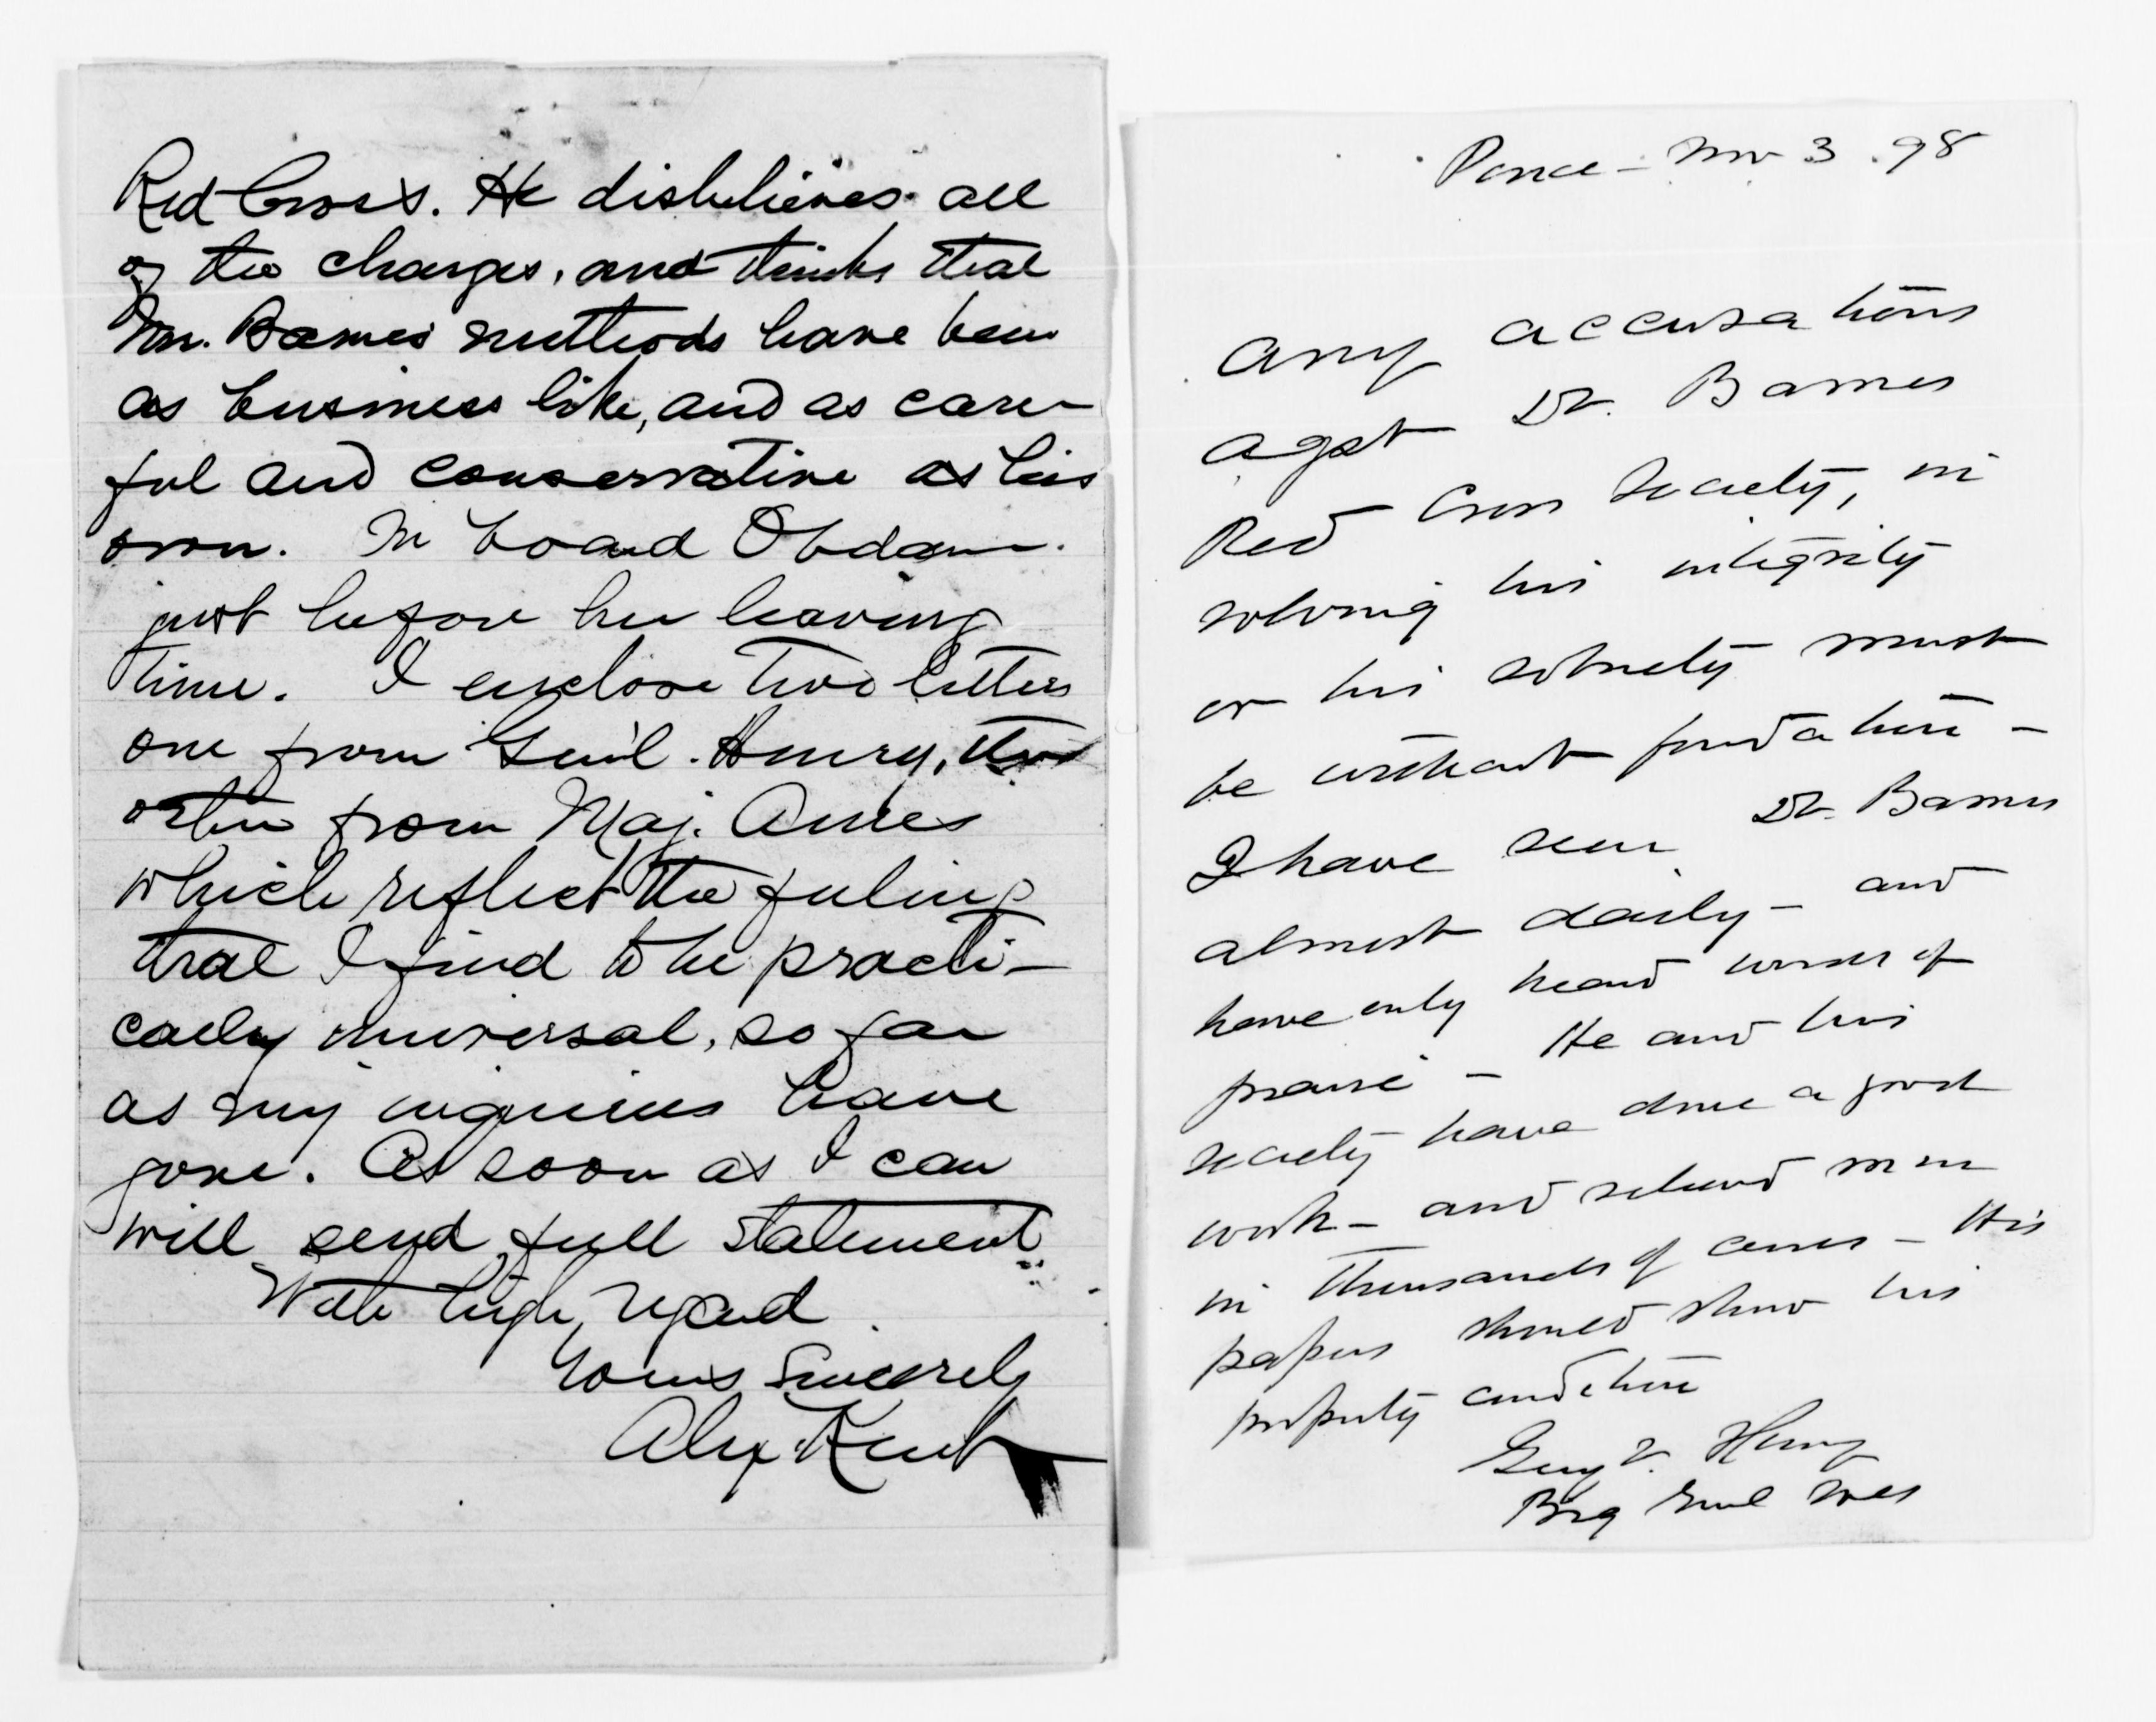 Red Cross. He disbelieves all
of the charges, and thinks that
Mr. Barnes methods have been
as business like, and as care-
ful and conservative as his
own. In board Obdam.
just before her leaving
time. I enclose two letters
one from Gen'l. Henry, the
other from Maj. Ames
which reflect the feeling
that I find to be practi-
cally universal, so far
as my inquiries have
gone. As soon as I can
will send full statement
With high regard
Yours Sincerely
Alex Kent
Ponce - Nov 3 . 98
Any accusations
agst Dr. Barnes
Red Cross Society, in
volving his integrity
or his sobriety must
be without foundation -
I have seen Dr. Barnes
almost daily - and
have only heard words of
praise - He and his
society have done a good
work - and relieved
in thousands of cases - His
papers should show his
property condition
Guy V. Henry
Brig Genl Vols